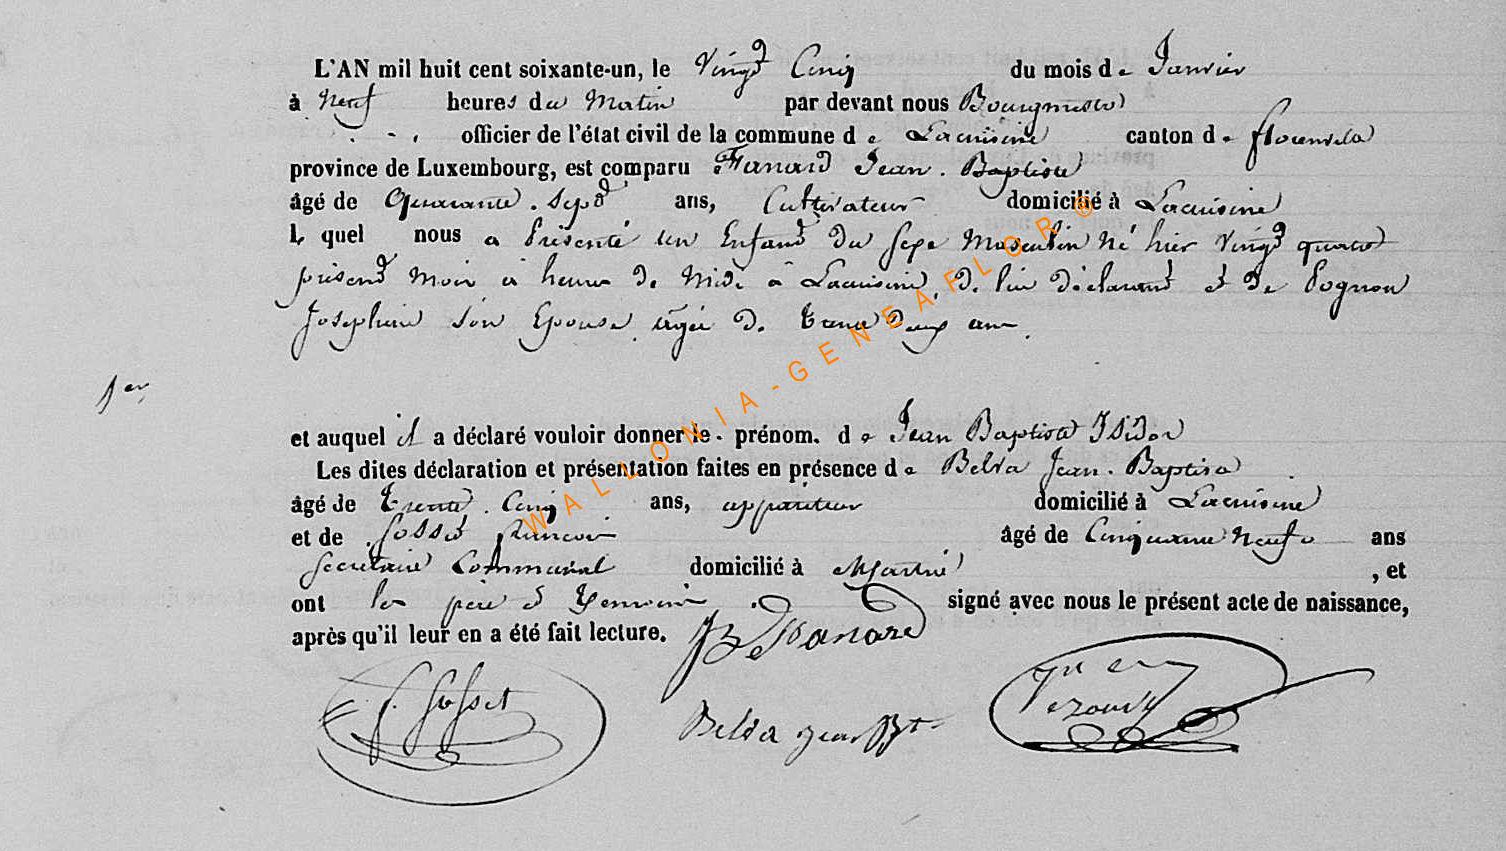 L'AN mil huit cent soixante-un, le Vingt Cinq du mois de Janvier
à Neuf heures du Matin par devant nous Bourgmestre
officier de l'état civil de la commune de Lacuisine canton de florenville
province de Luxembourg, est comparu Hanard Jean Baptiste
âgé de Quarante Sept ans, Cultivateur domicilié à Lacuisine
Le quel nous a Présenté un Enfant du sexe Masculin né hier Vingt quatre
présent Mois à heure de Midi à Lacuisine, de lui déclarant et de Pognon
Josephine son Epouse agée de Trente Deux ans.
1er
et auquel il a déclaré vouloir donner le prénom. de Jean Baptiste Isidor
Les dites déclaration et présentation faites en présence de Belva Jean Baptiste
âgé de Trente Cinq ans, appariteur domicilié à Lacuisine
et de Gosset françois âgé de Cinquante Neuf ans
Secretaire Communal domicilié à Martué, et
ont les père et Temoins signé avec nous le présent acte de naissance,
après qu'il leur en a été fait lecture. JB Hanard
f. Gosset Belva Jean Bte
WALLONIA-GENEAFLOR®